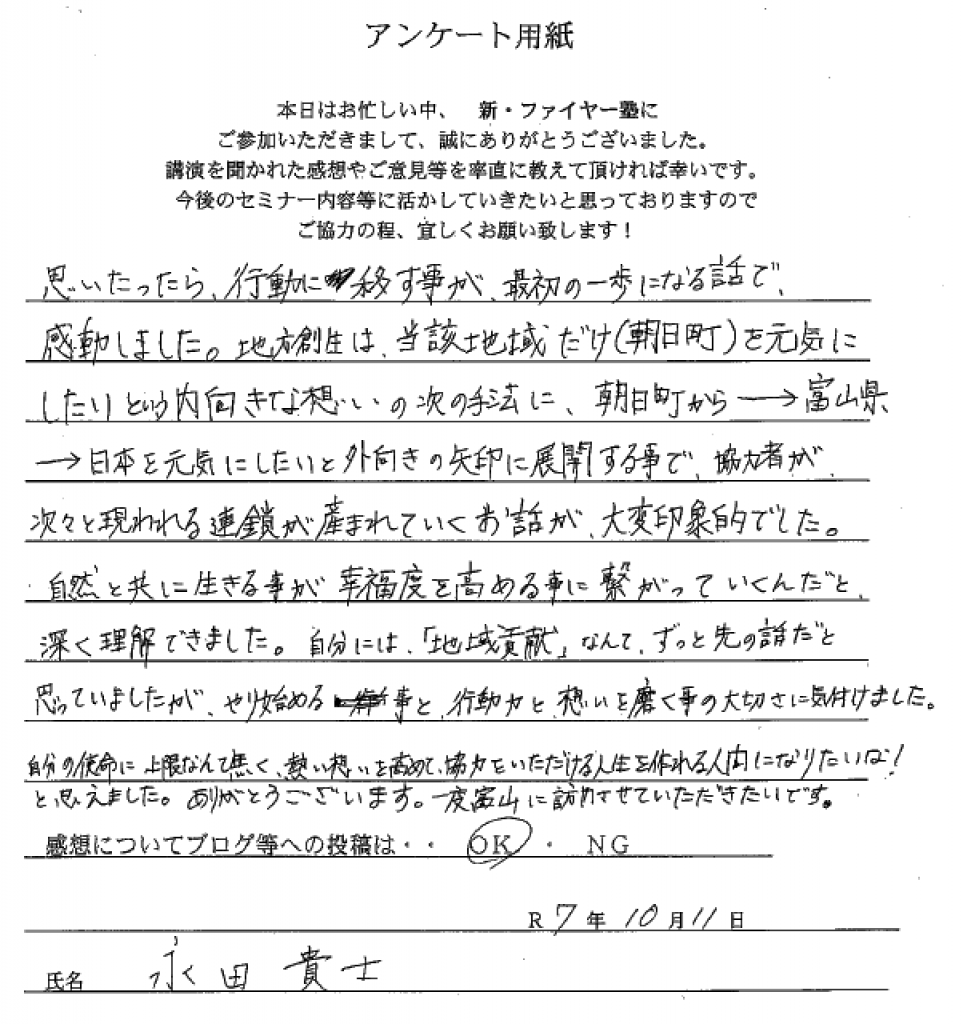 アンケート用紙
本日はお忙しい中、 新・ファイヤー塾に
ご参加いただきまして、誠にありがとうございました。
講演を聞かれた感想やご意見等を率直に教えて頂ければ幸いです。
今後のセミナー内容等に活かしていきたいと思っておりますので
ご協力の程、宜しくお願い致します！
思いたったら、行動に移す事が、最初の一歩になる話で、
感動しました。地方創生は、当該地域だけ(朝日町)を元気に
したいという内向きな想いの次の手法に、朝日町から→富山県
→日本を元気にしたいと外向きの矢印に展開する事で、協力者が、
次々と現われる連鎖が産まれていくお話が、大変印象的でした。
自然と共に生きる事が幸福度を高める事に繋がっていくんだと、
深く理解できました。自分には、「地域貢献」なんて、ずっと先の話だと
思っていましたが、やり始める事と、行動力と、想いを磨く事の大切さに気付けました。
自分の使命に上限なんて無く、熱い想いを高めて、協力をいただける人生を作れる人間になりたいな!
と思えました。ありがとうございます。一度富山に訪問させていただきたいです。
感想についてブログ等への投稿は・・ OK ・ NG
R 7 年 10 月 11 日
氏名 永田 貴士